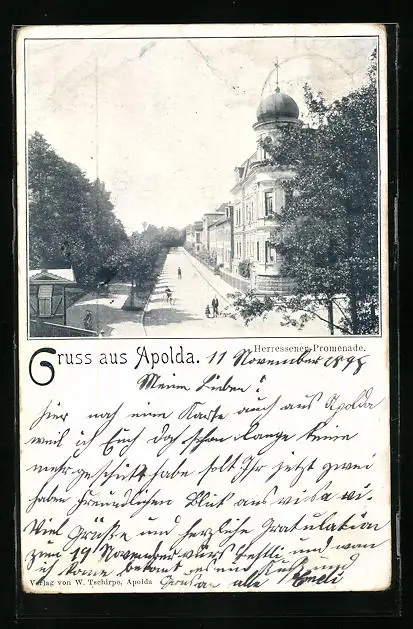 Herressener Promenade.
Gruss aus Apolda. 11 November 1898
Meine Lieben!
hier noch eine Karte auch aus Apolda
weil ich Euch doch schon lange keine
mehr geschickt habe solt Ihr jetzt zwei
haben Freundlichen Blick aus
Viel Grüße und herzliche Gratulation
zum 19 November und
ich bekomt
Verlag von W. Tschirpo, Apolda
alle